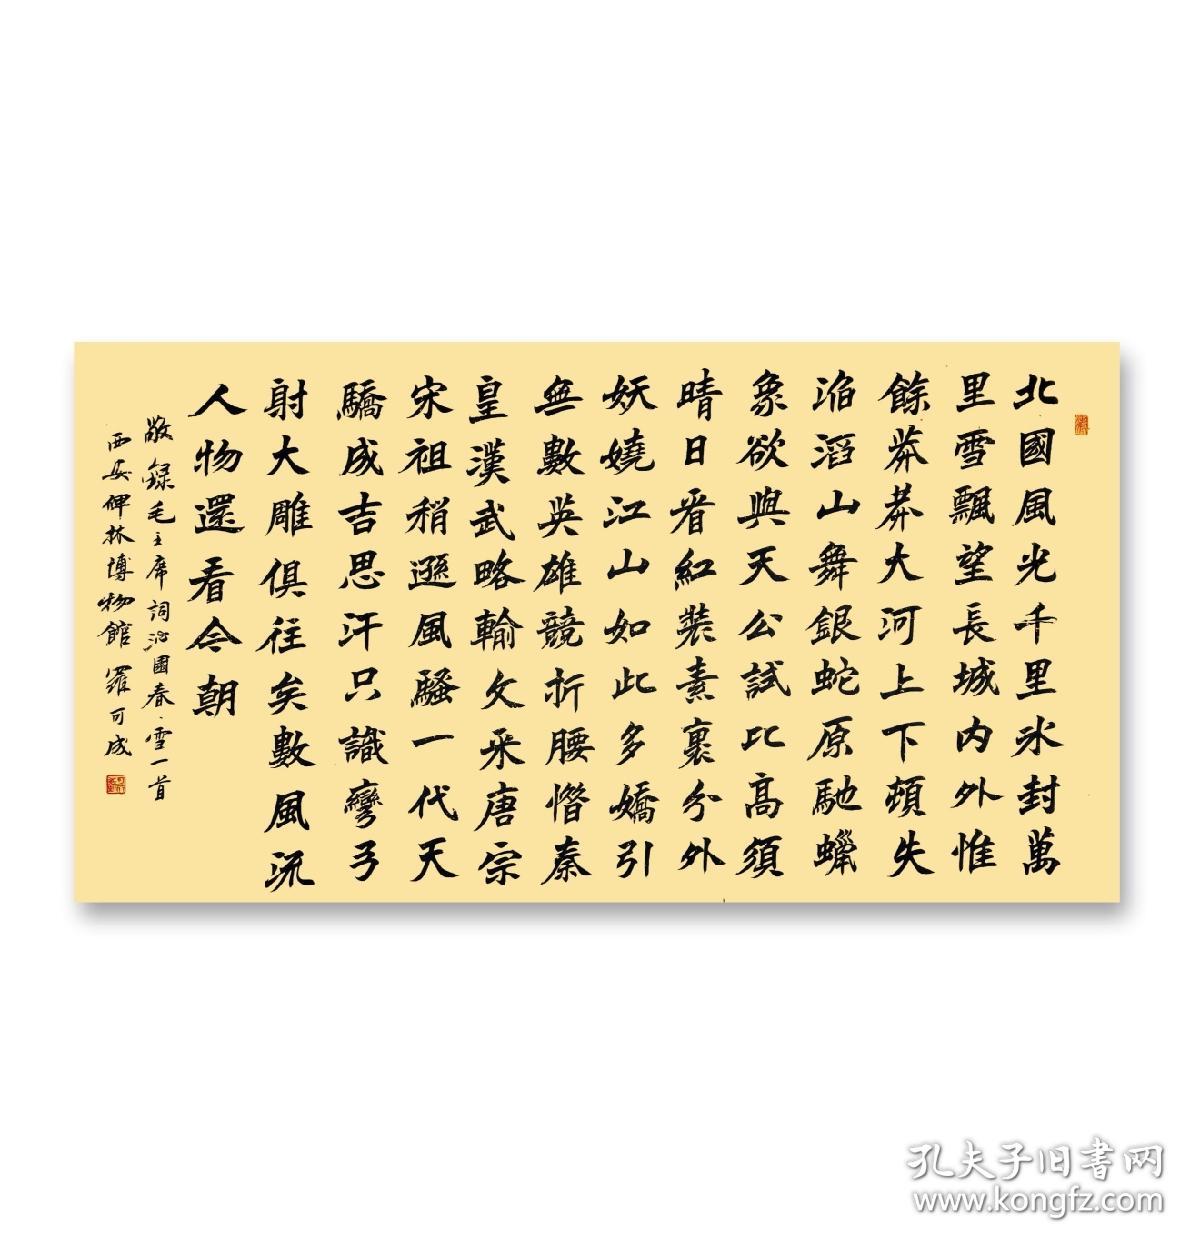 北國風光千里冰封萬
里雪飄望長城內外惟
餘莽莽大河上下頓失
滔滔山舞銀蛇原馳蠟
象欲與天公試比高須
晴日看紅裝素裹分外
妖嬈江山如此多嬌引
無數英雄競折腰惜秦
皇漢武略輸文采唐宗
宋祖稍遜風騷一代天
驕成吉思汗只識彎弓
射大雕俱往矣數風流
人物還看今朝
敬錄毛主席詞沁園春·雪一首
西安碑林博物館 羅可成
孔夫子旧書网
www.kongfz.com